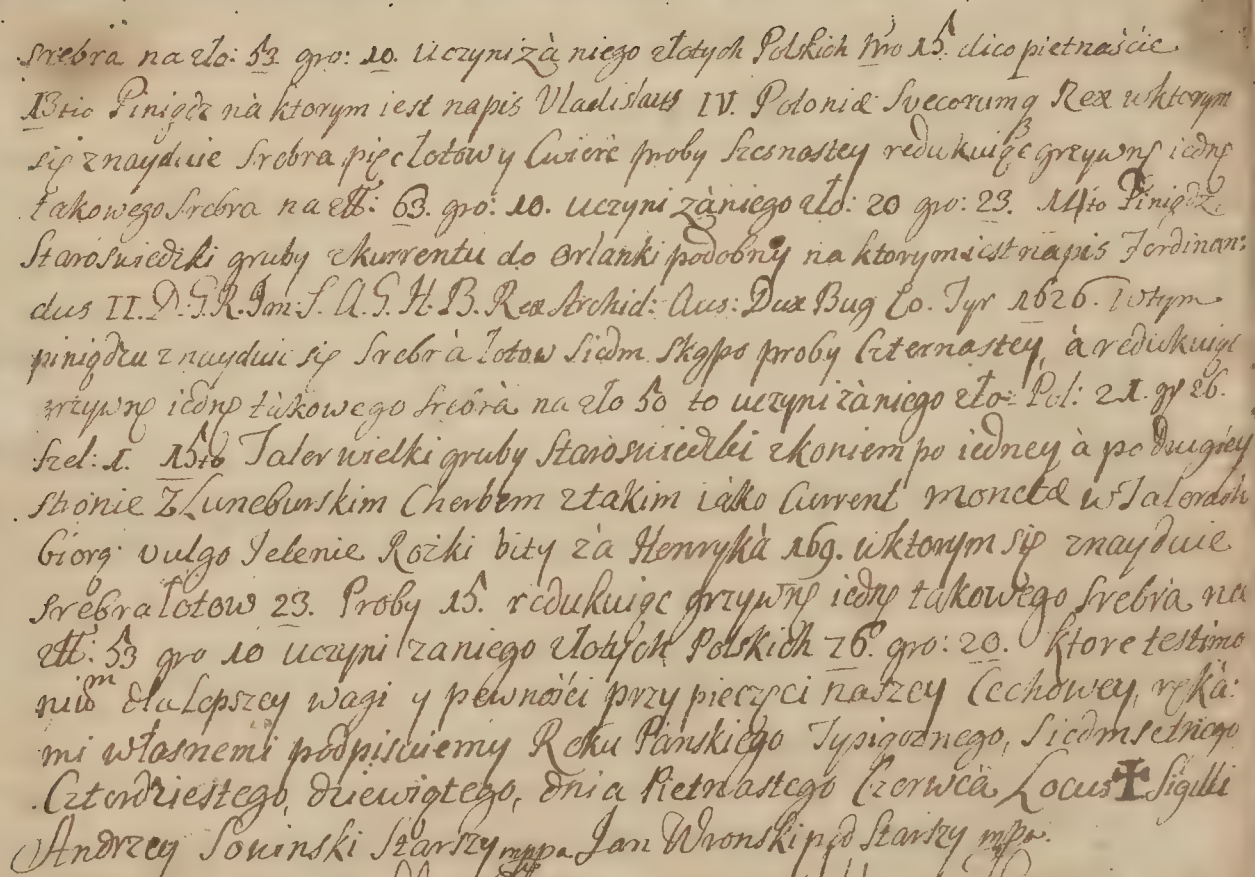 srebra na zło: 53. gro: 10. Uczyni zà niego złotych Polskich Nro 15. dico pietnaście
13tio Piniądz nà ktorym iest napis Vladislaus IV. Poloniæ Svecorumq Rex wktorym
się znayduie Srebra pięc łotow y Cwierc proby Szesnastey redukuiąc grzywnę iednę
takowego Srebra na zł: 63. gro: 10. uczyni zà niego zło: 20 gro: 23. 14to Piniądz
Staroswiedzki gruby zkurrentu do Orlanki podobny na ktorym iest napis Ferdinan:
dus II. D. G. R. Im: S. A. G. H. B. Rex Archid: Aus: Dux Bug Co. Tyr 1626. Wtym
piniądzu znayduie się Srebrà łotow Siedm skąpo proby Czternastey, à redukuiąc
grzywnę iednę tàkowego Srebrà na zło 50 to uczyni zà niego zło: Pol: 21. gr 26.
szel: 1. 15to Taler wielki gruby Staroswiedzki zkoniem po iedney à po drugiey
stronie z Luneburskim Cherbem ztakim iàko Current monetæ w Talerach
Giorg: vulgo Jelenie Rożki bity zà Henrykà 169. wktorym się znayduie
srebra łotow 23. Proby 15. redukuiąc grzywnę iednę takowego Srebrà na
zł: 53 gro 10 uczyni zaniego złotych Polskich 76. gro: 20. ktore testimo
nium dla Lepszey wagi y pewności przy pieczęci naszey Cechowey, ręka:
mi własnemi podpisuiemy Roku Pańskiego Tysiącznego, Siedmsetnego
Czterdziestego, dziewiątego, dnia Pietnastego Czerwca Locus ✝ Sigilli
Andrzey Sowinski Starszy mppa Jan Wronski pod Starszy mpa.